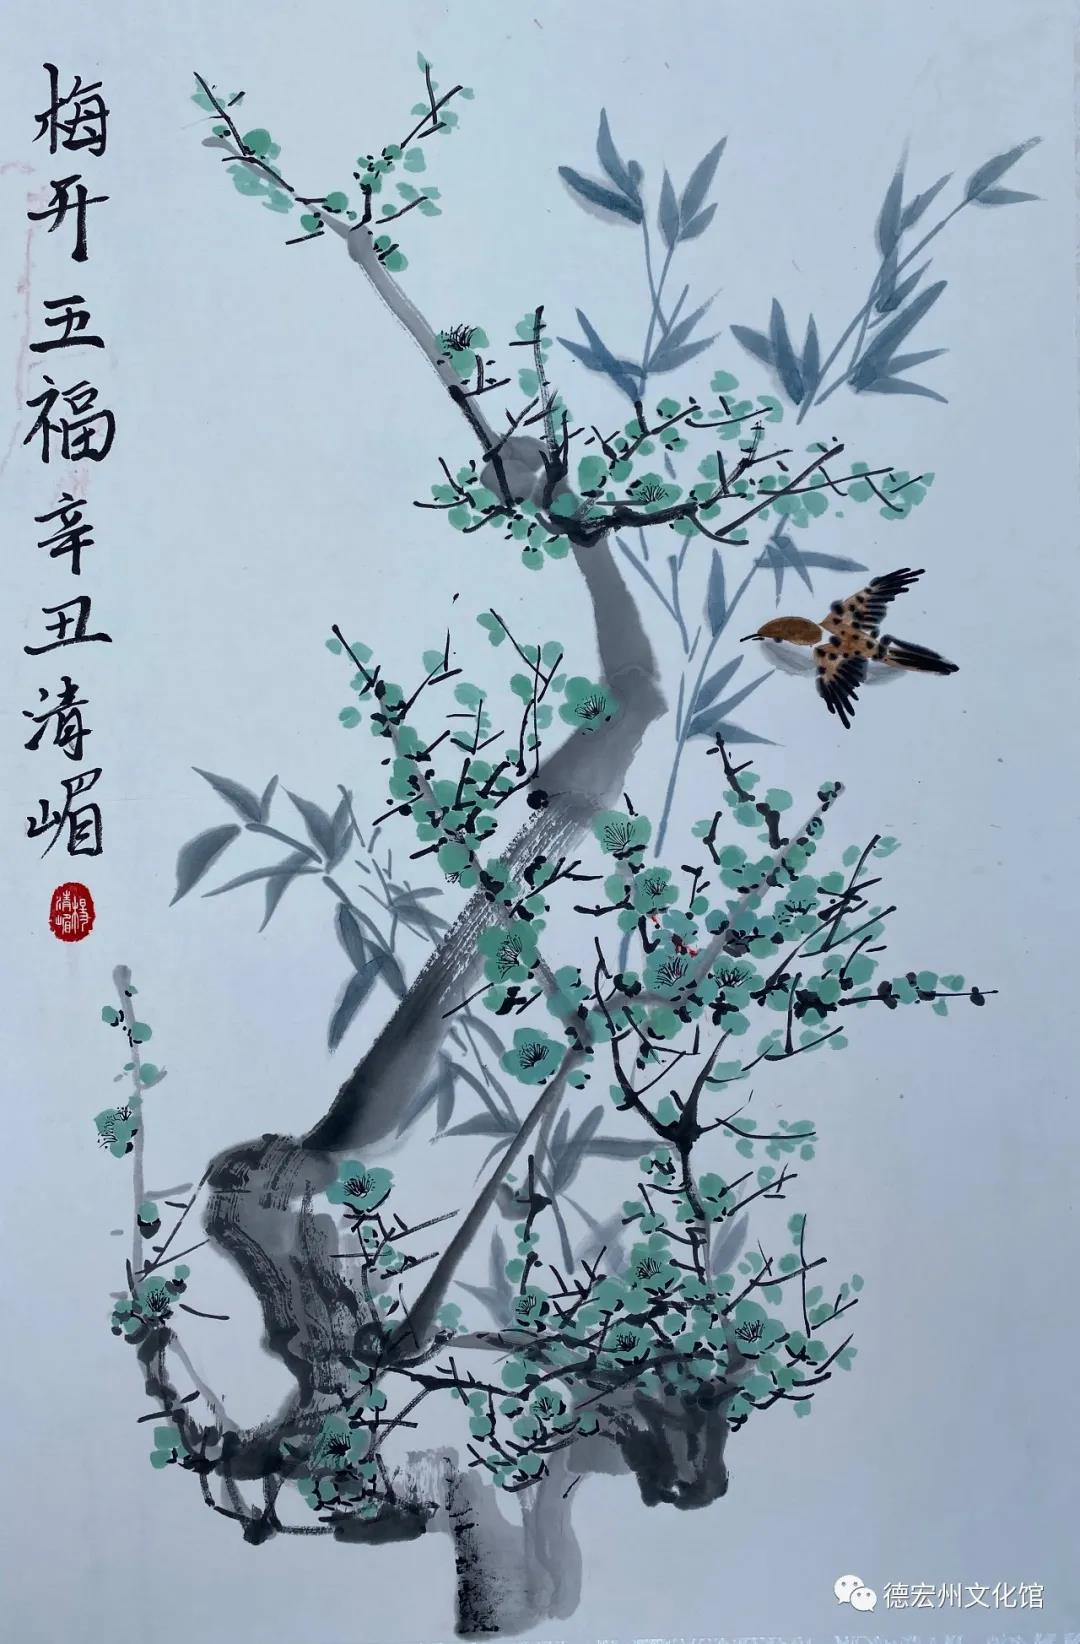 梅开五福辛丑清嵋
杨清嵋
德宏州文化馆